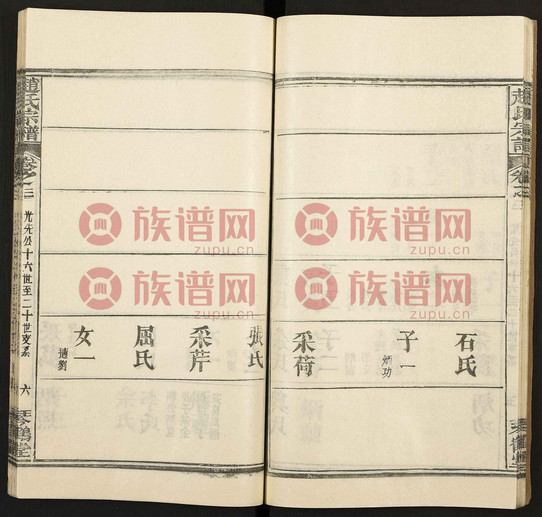 趙氏宗譜
卷之二
石氏
子一
炳功
采荷
張氏
采芹
屈氏
女一
適劉
趙氏宗譜
卷之二
光先公十六世至二十世支系
六
琴鶴堂
族谱网
zupu.cn
族谱网
zupu.cn
族谱网
zupu.cn
族谱网
zupu.cn